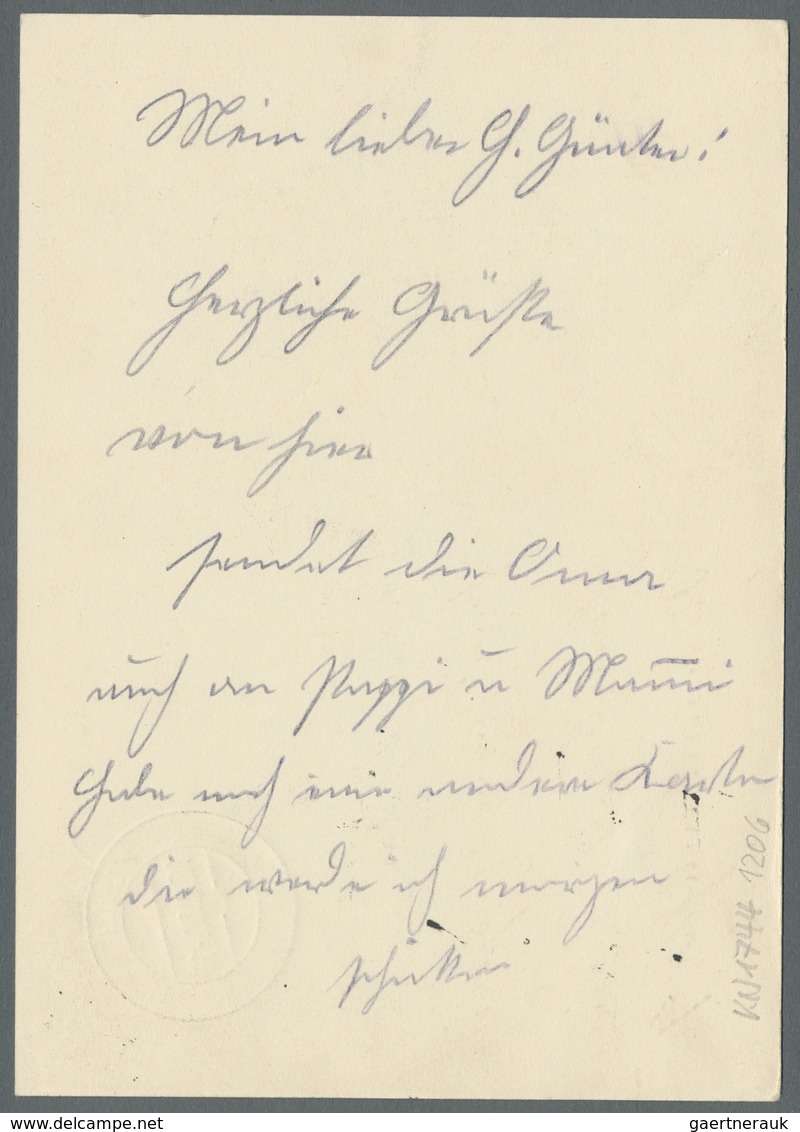 Mein lieber H. Günter!
Herzliche Grüße
von hier
sendet die Oma
auch an Pappi u Mam̅i
Habe noch eine andere Karte
die werde ich morgen
schicken
KN1744 1206
gaertnerauk